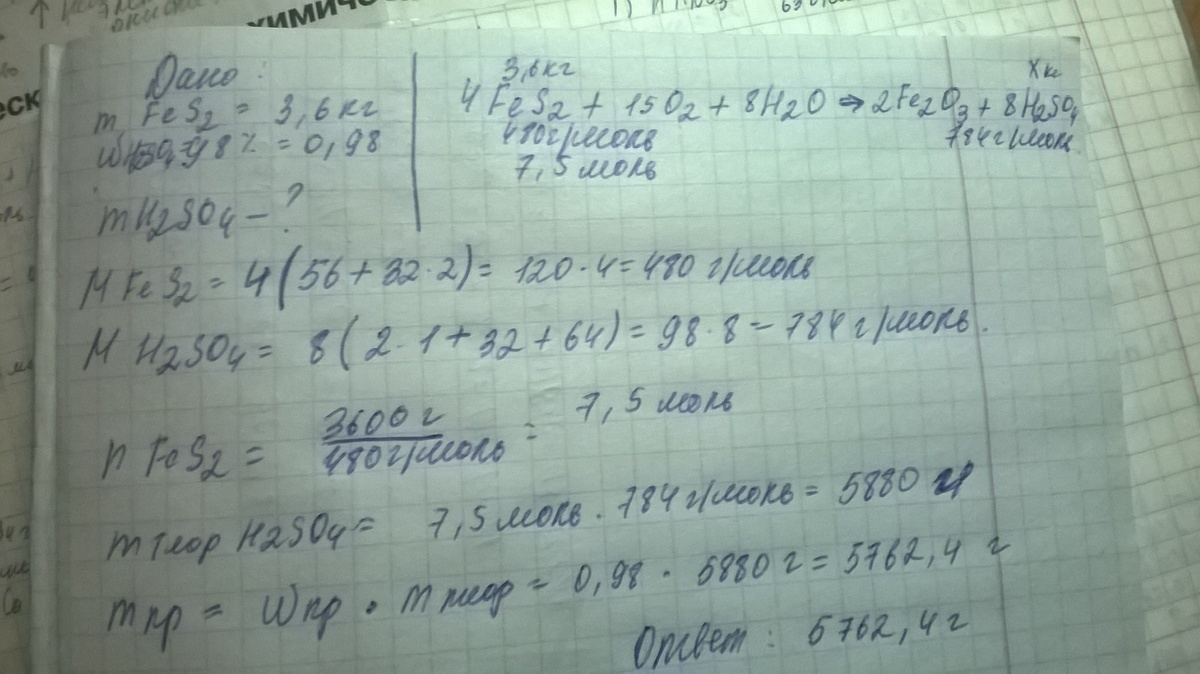 Дано:
m FeS2 = 3,6 кг
98% = 0,98
m H2SO4 – ?
3,6 кг
X кг
4 FeS2 + 15O2 + 8H2O → 2Fe2O3 + 8H2SO4
480 г/моль
784 г/моль
7,5 моль
M FeS2 = 4(56 + 32·2) = 120·4 = 480 г/моль
M H2SO4 = 8(2·1 + 32 + 64) = 98·8 – 784 г/моль.
n FeS2 = 3600 г / 480 г/моль = 7,5 моль
m теор H2SO4 = 7,5 моль · 784 г/моль = 5880 г
m пр = W пр • m теор = 0,98 · 5880 г = 5762,4 г
Ответ: 5762,4 г